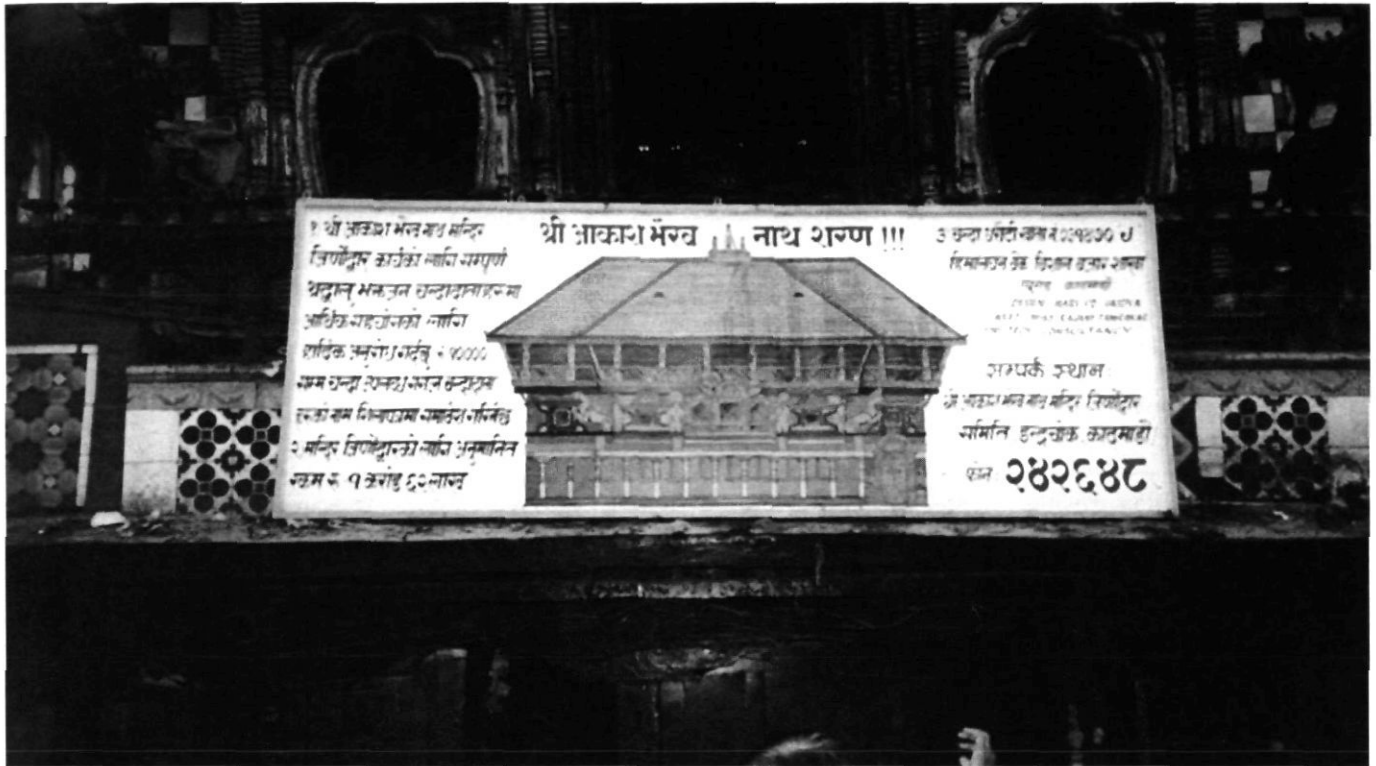 श्री आकाश भैरव नाथ शरण !!!
१ श्री आकाश भैरव नाथ मन्दिर
जिर्णोद्वार कार्यको लागि सम्पूर्ण
श्रद्धालु भक्तजन चन्दादाताहरुमा
आर्थिक सहयोगको लागि
हार्दिक अनुरोध गर्दछु रु १००००
सम्म चन्दा
हरुको नाम शिलापत्रमा समावेश गरिनेछ
२ मन्दिर जिर्णोद्वारको लागि अनुमानित
रकम रु १ करोड ६२ लाख
३ चन्दा धरौटी खाता नं
हिमालयन बैंक विशाल बजार शाखा
सम्पर्क स्थान
श्री आकाश भैरव नाथ मन्दिर जिर्णोद्वार
समिति इन्द्रचोक काठमाडौं
फोन २४२६४८